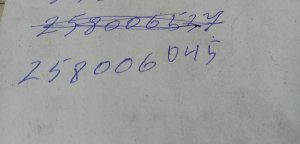 258006537
258006045